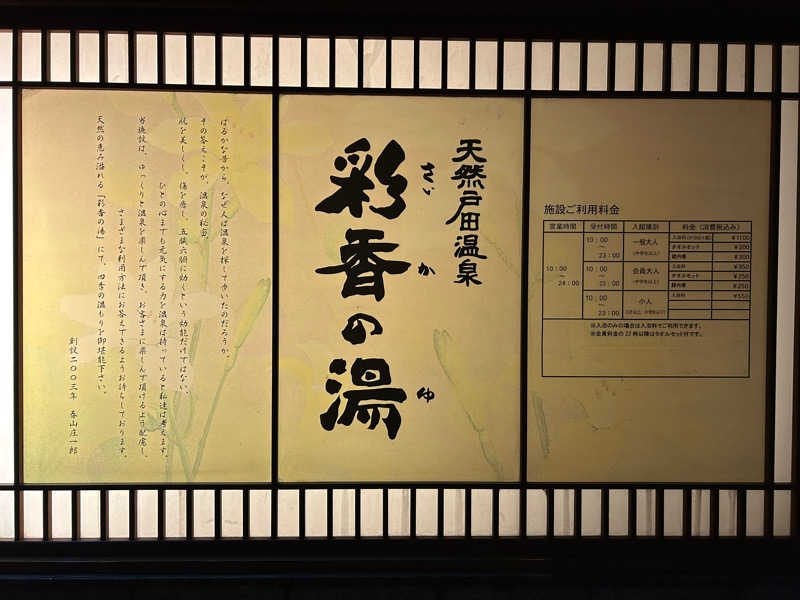 はるかな昔から、なぜ人は温泉を探して歩いたのだろうか。
その答えこそが、温泉の秘密。
肌を美しくし、傷を癒し、五臓六腑に効くという効能だけではない、
ひとの心までも元気にする力を温泉は持っていると私達は考えます。
当施設は、ゆっくりと温泉を楽しんで頂き、お客さまに楽しんで頂けるよう配慮し、
さまざまな利用方法にお答えできるようお待ちしております。
天然の恵み溢れる『彩香の湯』にて、四季の温もりを御堪能下さい。
創設二〇〇三年 春山庄一郎
天然戸田温泉
彩香の湯
さいか ゆ
施設ご利用料金
営業時間 受付時間 入館種別 料金(消費税込み)
10:00
~
24:00
10:00
~
23:00
一般大人
(中学生以上)
入浴料 ¥1100
タオルセット ¥200
館内着 ¥300
10:00
~
23:00
会員大人
(中学生以上)
入浴料 ¥950
タオルセット ¥250
館内着 ¥250
10:00
~
23:00
小人
入浴料 ¥550
※入浴のみの場合は入浴料でご利用できます。
※会員料金の22時以降はタオルセット付です。